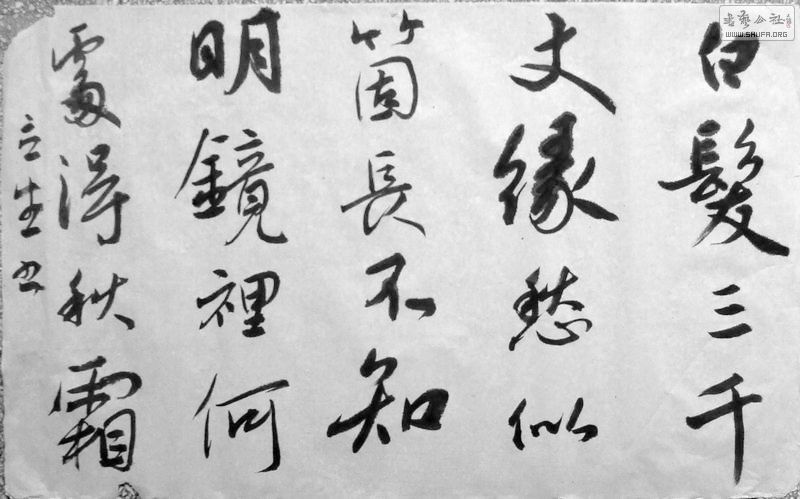 白髮三千
丈緣愁似
箇長不知
明鏡裡何
處得秋霜
立生书
書藝公社
WWW.SHUFA.ORG